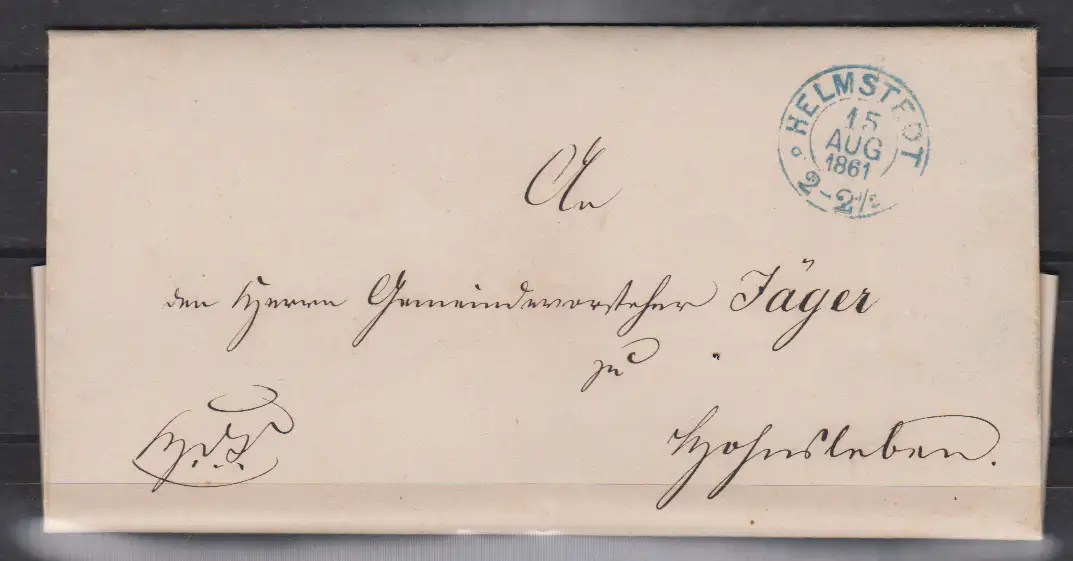 HELMSTEDT
15
AUG
1861
2-2½
An
den Herrn Gemeindevorsteher Jäger
zu
Hohnsleben.